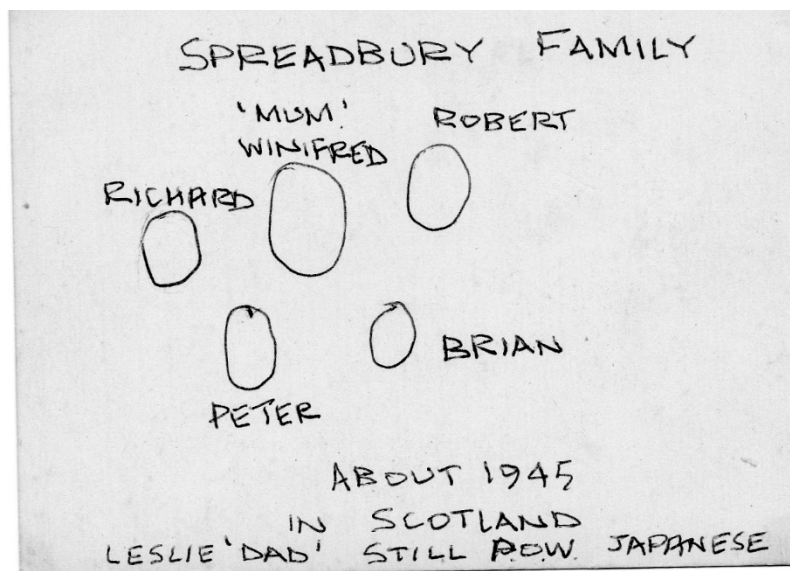 SPREADBURY FAMILY
'MUM'
WINIFRED
ROBERT
RICHARD
BRIAN
PETER
ABOUT 1945
IN SCOTLAND
LESLIE 'DAD' STILL P.O.W. JAPANESE